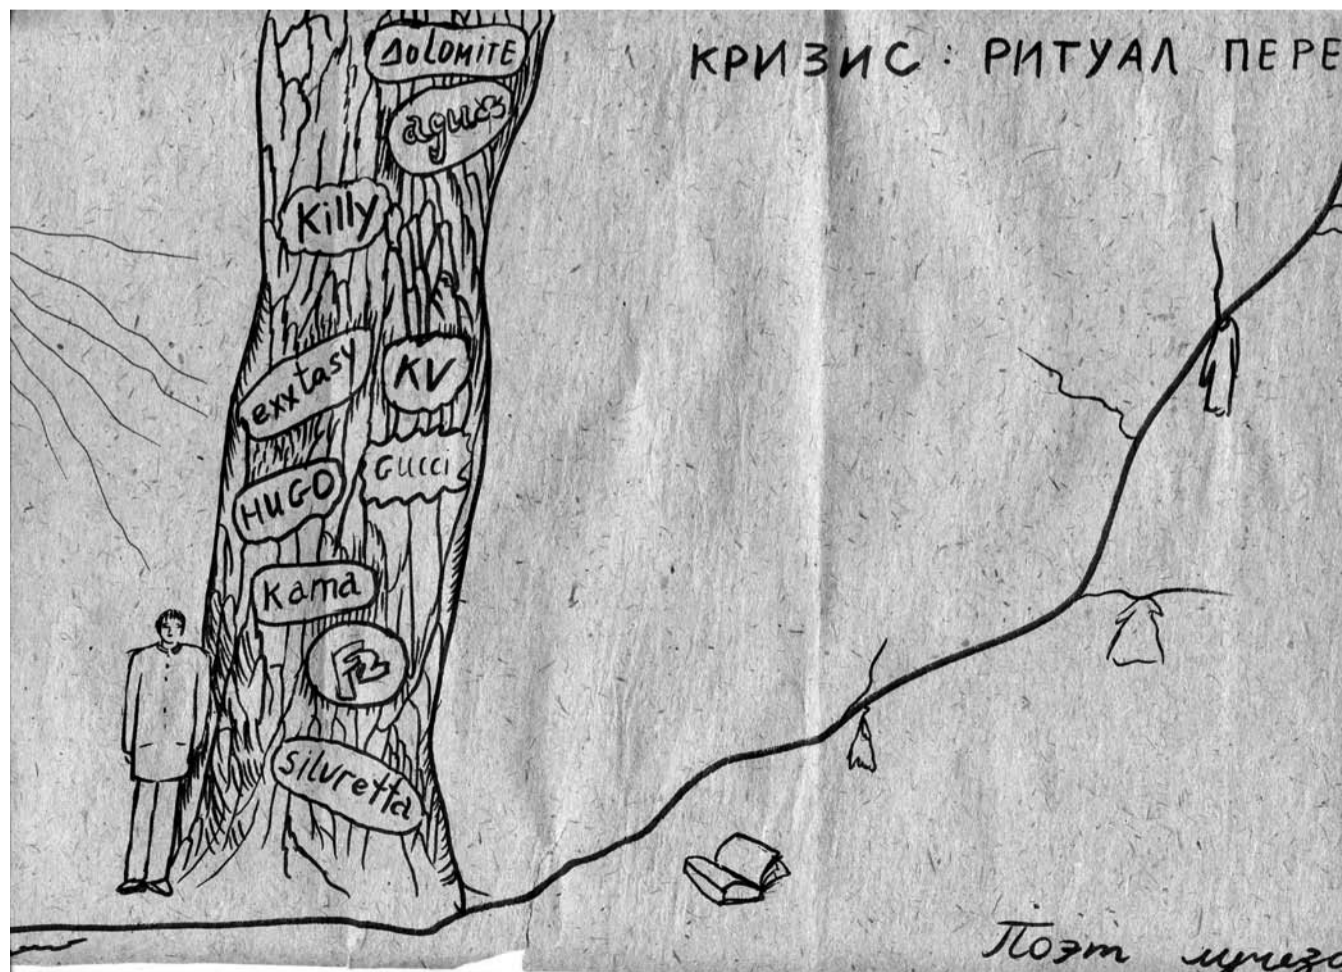 КРИЗИС: РИТУАЛ ПЕРЕ
DOLOMITE
Killy
exxtasy
KV
Gucci
HUGO
kama
F2
silvretta
Поэт